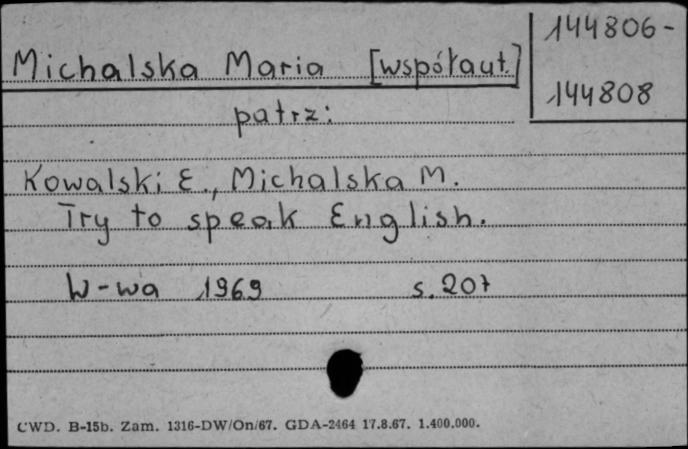 144806-
Michalska Maria [współaut.]
144808
patrz:
Kowalski E., Michalska M.
Try to speak English.
W-wa 1969 s. 207
CWD. B-15b. Zam. 1316-DW/On/67. GDA-2464 17.8.67. 1.400.000.